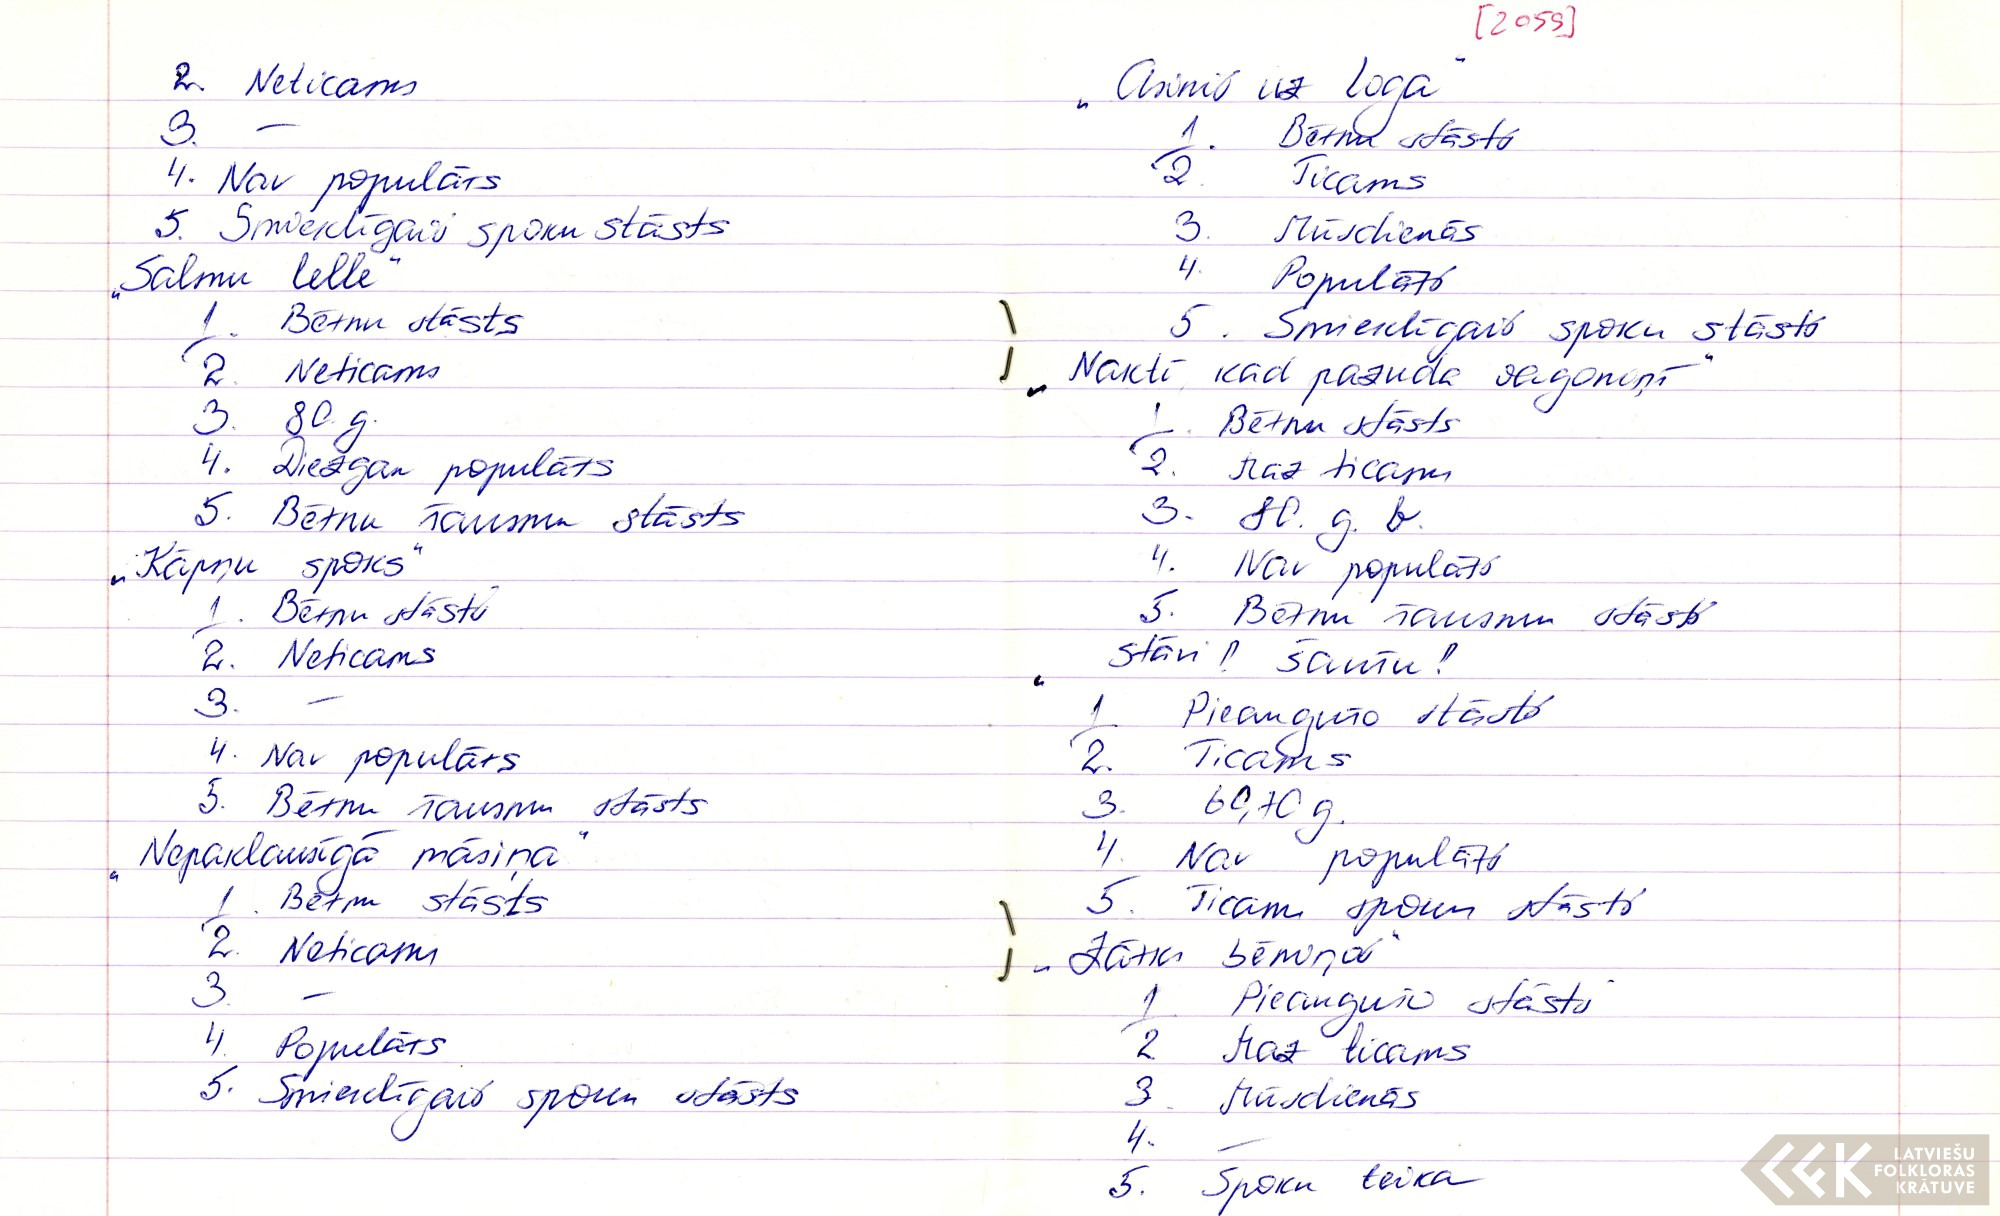 [2059]
2. Neticams
3. —
4. Nav populārs
5. Smieklīgais spoku stāsts
„Salmu lelle"
1. Bērnu stāsts
2. Neticams
3. 80. g.
4. Diezgan populārs
5. Bērnu šausmu stāsts
„Kāpņu spoks"
1. Bērnu stāsts
2. Neticams
3. —
4. Nav populārs
5. Bērnu šausmu stāsts
„Nepaklausīgā māsiņa"
1. Bērnu stāsts
2. Neticams
3. —
4. Populārs
5. Smieklīgais spoku stāsts
„Asinis uz loga"
1. Bērnu stāsts
2. Ticams
3. Mūsdienās
4. Populārs
5. Smieklīgais spoku stāsts
„Naktī, kad pazuda vagoniņi"
1. Bērnu stāsts
2. Maz ticams
3. 80. g. b.
4. Nav populārs
5. Bērnu šausmu stāsts
„Stāvi! Šaušu!
1. Pieaugušo stāsts
2. Ticams
3. 60, 70 g.
4. Nav populārs
5. Ticams spoku stāsts
„Zārks bēniņos"
1. Pieaugušo stāsts
2 Maz ticams
3. Mūsdienās
4. —
5. Spoku teika
LATVIEŠU
FOLKLORAS
KRĀTUVE